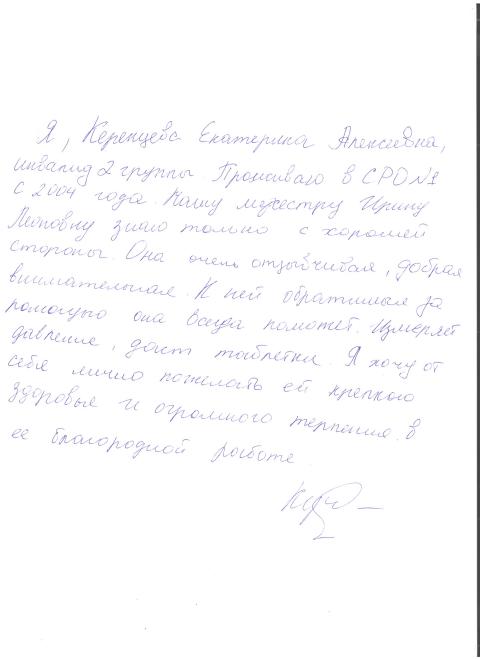 Я, Керенцева Екатерина Алексеевна,
инвалид 2 группы. Проживаю в СРО №1
с 2004 года. Нашу медсестру Ирину
Леоновну знаю только с хорошей
стороны. Она очень отзывчивая, добрая
внимательная. К ней обратишься за
помощью она всегда поможет. Измеряет
давление, даст таблетки. Я хочу от
себя лично пожелать ей крепкого
здоровье и огромного терпения в
ее благородной работе